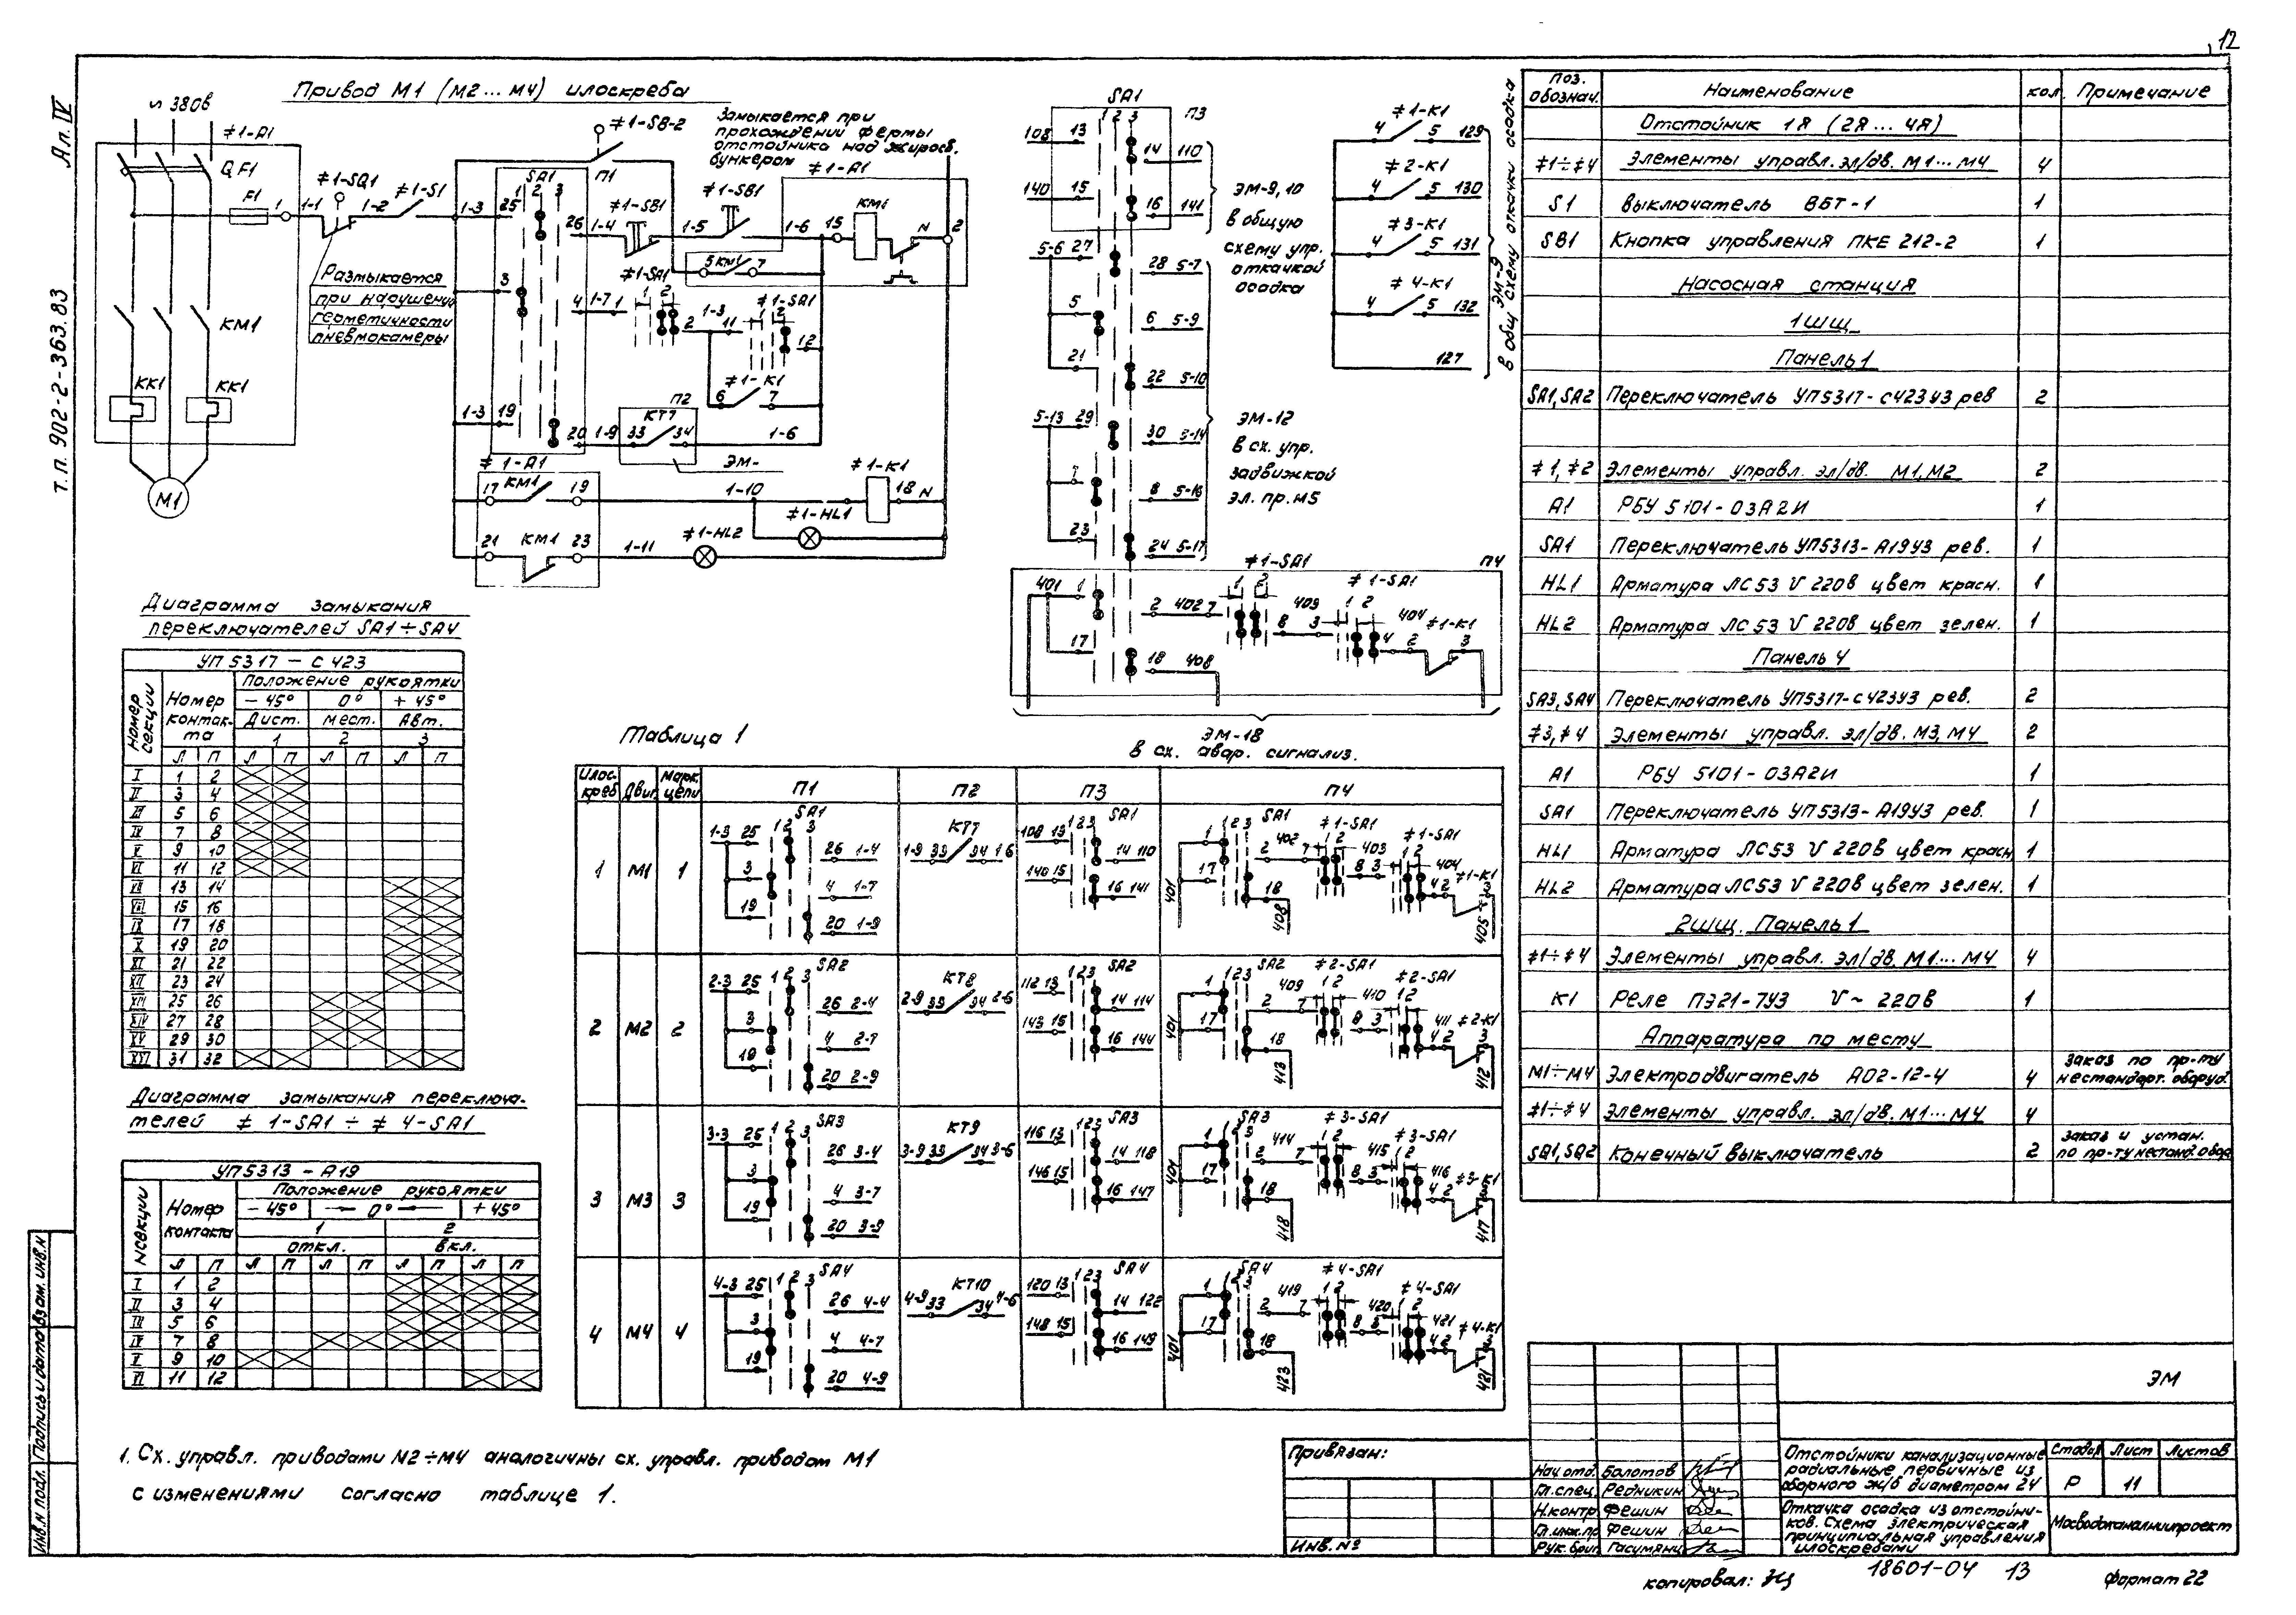 12
Ал. IV
т.п. 902-2-363.83
Привод М1 (М2...М4) илоскреба
∿ 380в
≠1-А1
QF1
F1
1
1-1
≠1-SQ1
1-2
≠1-S1
1-3
КМ1
КК1
КК1
М1
Размыкается
при нарушении
герметичности
пневмокамеры
≠1-SB-2
Замыкается при
прохождении фермы
отстойника над жиросб.
бункером
≠1-А1
SA1
П1
1 2 3
25
26
1-4
≠1-SB1
1-5
≠1-SB1
1-6
15
КМ1
N
2
5 КМ1 7
3
4
1-7
1
≠1-SA1
1 2
2
1-3
11
≠1-SA1
12
≠1-К1
6
7
1-3
19
20
1-9
П2
КТ7
33
34
1-6
ЭМ-
≠1-А1
17
КМ1
19
1-10
≠1-К1
18
N
≠1-HL1
21
КМ1
23
1-11
≠1-HL2
SA1
П3
1 2 3
108
13
14
110
140
15
16
141
ЭМ-9,10
в общую
схему упр.
откачкой
осадка
5-6
27
28
5-7
5
6
5-9
21
22
5-10
5-13
29
30
5-14
7
8
5-16
23
24
5-17
ЭМ-12
в сх. упр.
задвижкой
эл. пр. М5
≠1-К1
4
5
129
≠2-К1
4
5
130
≠3-К1
4
5
131
≠4-К1
4
5
132
127
ЭМ-9
в общ схему откачки осадка
П4
401
1
2
402
7
≠1-SA1
1 2
8
409
3
≠1-SA1
1 2
4
404
2
≠1-К1
3
17
18
408
ЭМ-18
в сх. авар. сигнализ.
Диаграмма замыкания
переключателей SA1÷SA4
УП5317-С423
Номер секции
Номер контакта
Положение рукоятки
-45° 0° +45°
Дист. мест. Авт.
1 2 3
Л П Л П Л П Л П
I 1 2
II 3 4
III 5 6
IV 7 8
V 9 10
VI 11 12
VII 13 14
VIII 15 16
IX 17 18
X 19 20
XI 21 22
XII 23 24
XIII 25 26
XIV 27 28
XV 29 30
XVI 31 32
Диаграмма замыкания переключа-
телей ≠1-SA1÷≠4-SA1
УП5313-А19
№секции
Номер контакта
Положение рукоятки
-45° 0° +45°
1 2
откл. вкл.
Л П Л П Л П Л П Л П
I 1 2
II 3 4
III 5 6
IV 7 8
V 9 10
VI 11 12
Таблица 1
Илос-
креб Двиг Марк. цепи П1 П2 П3 П4
1 М1 1
SA1 1 2 3
1-3 25 26 1-4
3 4 1-7
19 20 1-9
КТ7
1-9 33 34 1-6
SA1 123
108 13 14 110
140 15 16 141
SA1 ≠1-SA1 ≠1-SA1
1 2 402 7 8 403 3 4 404 2 ≠1-К1 3
401 17 18 408 405
2 М2 2
SA2 1 2 3
2-3 25 26 2-4
3 4 2-7
19 20 2-9
КТ8
2-9 33 34 2-6
SA2 123
112 13 14 114
143 15 16 144
SA2 ≠2-SA1 ≠2-SA1
1 2 409 7 8 410 3 4 411 2 ≠2-К1 3
401 17 18 413 412
3 М3 3
SA3 1 2 3
3-3 25 26 3-4
3 4 3-7
19 20 3-9
КТ9
3-9 33 34 3-6
SA3 123
116 13 14 118
146 15 16 147
SA3 ≠3-SA1 ≠3-SA1
1 2 414 7 8 415 3 4 416 2 ≠3-К1
401 17 18 418 417
4 М4 4
SA4 1 2 3
4-3 25 26 4-4
3 4 4-7
19 20 4-9
КТ10
4-9 33 34 4-6
SA4 123
120 13 14 122
148 15 16 149
SA4 ≠4-SA1 ≠4-SA1
1 2 419 7 8 420 3 4 421 2 ≠4-К1 3
401 17 18 423 421
1. Сх. управл. приводами М2÷М4 аналогичны сх. управл. приводом М1
с изменениями согласно таблице 1.
поз. обознач. Наименование кол. Примечание
Отстойник 1Я (2Я...4Я)
≠1÷≠4 Элементы управл. эл/дв. М1...М4 4
S1 выключатель ВБТ-1 1
SB1 Кнопка управления ПКЕ 212-2 1
Насосная станция
1ШЩ
Панель 1
SA1, SA2 Переключатель УП5317-С423У3 рев 2
≠1, ≠2 Элементы управл. эл/дв. М1, М2 2
А1 РБУ 5101-03А2И 1
SA1 Переключатель УП5313-А19У3 рев. 1
HL1 Арматура ЛС53 V 220в цвет красн. 1
HL2 Арматура ЛС53 V 220в цвет зелен. 1
Панель 4
SA3, SA4 Переключатель УП5317-С423У3 рев. 2
≠3, ≠4 Элементы управл. эл/дв. М3, М4 2
А1 РБУ 5101-03А2И 1
SA1 Переключатель УП5313-А19У3 рев. 1
HL1 Арматура ЛС53 V 220в цвет красн 1
HL2 Арматура ЛС53 V 220в цвет зелен. 1
2ШЩ. Панель 1
≠1÷≠4 Элементы управл. эл/дв. М1...М4 4
К1 Реле ПЭ21-7У3 V~220в 1
Аппаратура по месту
М1÷М4 Электродвигатель АО2-12-4 4 Заказ по пр-ту нестандарт. оборуд.
≠1÷≠4 Элементы управл. эл/дв. М1...М4 4
SQ1, SQ2 Конечный выключатель 2 Заказ и устан. по пр-ту нестанд. обор.
ЭМ
Привязан:
Инв. №
Нач. отд. Болотов
Гл. спец. Редникин
Н.контр Фешин
Гл. инж. пр Фешин
Рук. бриг Гасумянц
Отстойники канализационные
радиальные первичные из
сборного ж/б диаметром 24
Стадия Лист Листов
Р 11
Откачка осадка из отстойни-
ков. Схема электрическая
принципиальная управления
илоскребами
Мосводоканалниипроект
Инв. № подл. Подпись и дата Взам. инв. №
копировал:
18601-04 13
формат 22